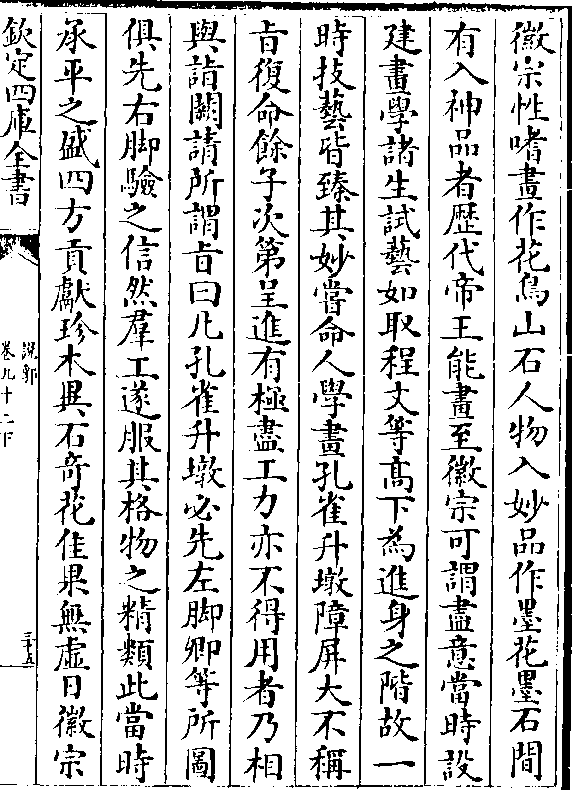 徽宗性嗜畫作花鳥山石人物入妙品作墨花墨石間
有入神品者歴代帝王能畫至徽宗可謂盡意當時設
建畫學諸生試藝如取程文等高下為進身之階故一
時技藝皆臻其妙嘗命人學畫孔雀升墩障屏大不稱
㫖復命餘子次第呈進有極盡工力亦不得用者乃相
與詣闕請所謂㫖曰凡孔雀升墩必先左脚卿等所圖
俱先右脚驗之信然羣工遂服其格物之精類此當時
承平之盛四方貢獻珍木異石奇花佳果無虛日徽宗
欽定四庫全書
說郛
卷九十二下
三十五